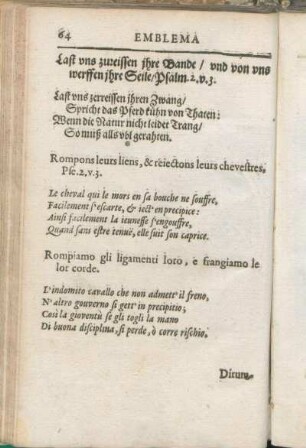 64 EMBLEMA
Last vns zureissen jhre Bande / vnd von vns
werffen jhre Seile / Psalm. 2. v. 3.
Last vns zerreissen ihren Zwang /
Spricht das Pferd kühn von Thaten:
Wenn die Natur nicht leidet Trang /
So muß alls vbl gerahten.
Rompons leurs liens, & reiectons leurs chevestres.
Psc. 2. v. 3.
Le cheval qui le mors en sa bouche ne souffre,
Facilement s'escarte, & iect' en precipice:
Ainsi facilement la ieunesse s'engouffre,
Quand sans estre tenuë, elle suit son caprice.
Rompiamo gli ligamenti loro, e frangiamo le
lor corde.
L'indomito cavallo che non admett' il freno,
N' altro gouverno si gett' in precipitio;
Così la gioventù se gli togli la mano
Di buona disciplina, si perde, ò corre rischio.
Dictum